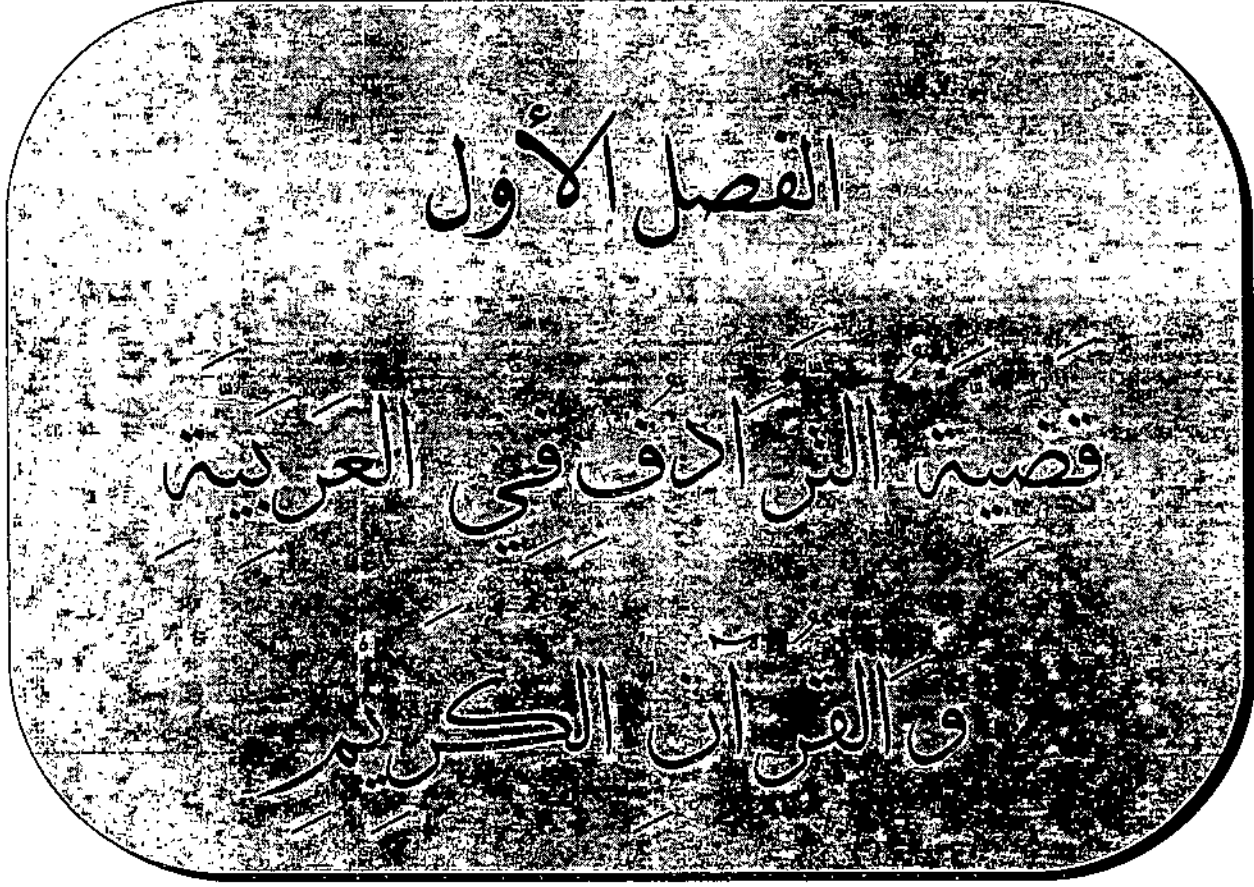 الفصل الأول
قَضِيَّةُ التَّرَادُفِ فِي العَرَبِيَّةِ
وَالقُرْآنِ الكَرِيمِ